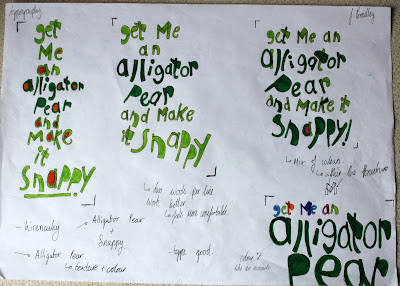 typography
J Bradley
get
Me
an
alligator
Pear
and
Make
it
Snappy
get Me
an
alligator
Pear
and Make
it Snappy
get Me an
alligator
Pear
and Make it
Snappy!
two words per line
work better
feels more comfortable
Mix of colours
- hierachy
- Alligator Pear
+
Snappy
- Alligator Pear
texture + colour
- type good.
colour it
like an avocado
get Me an
alligator
Pear